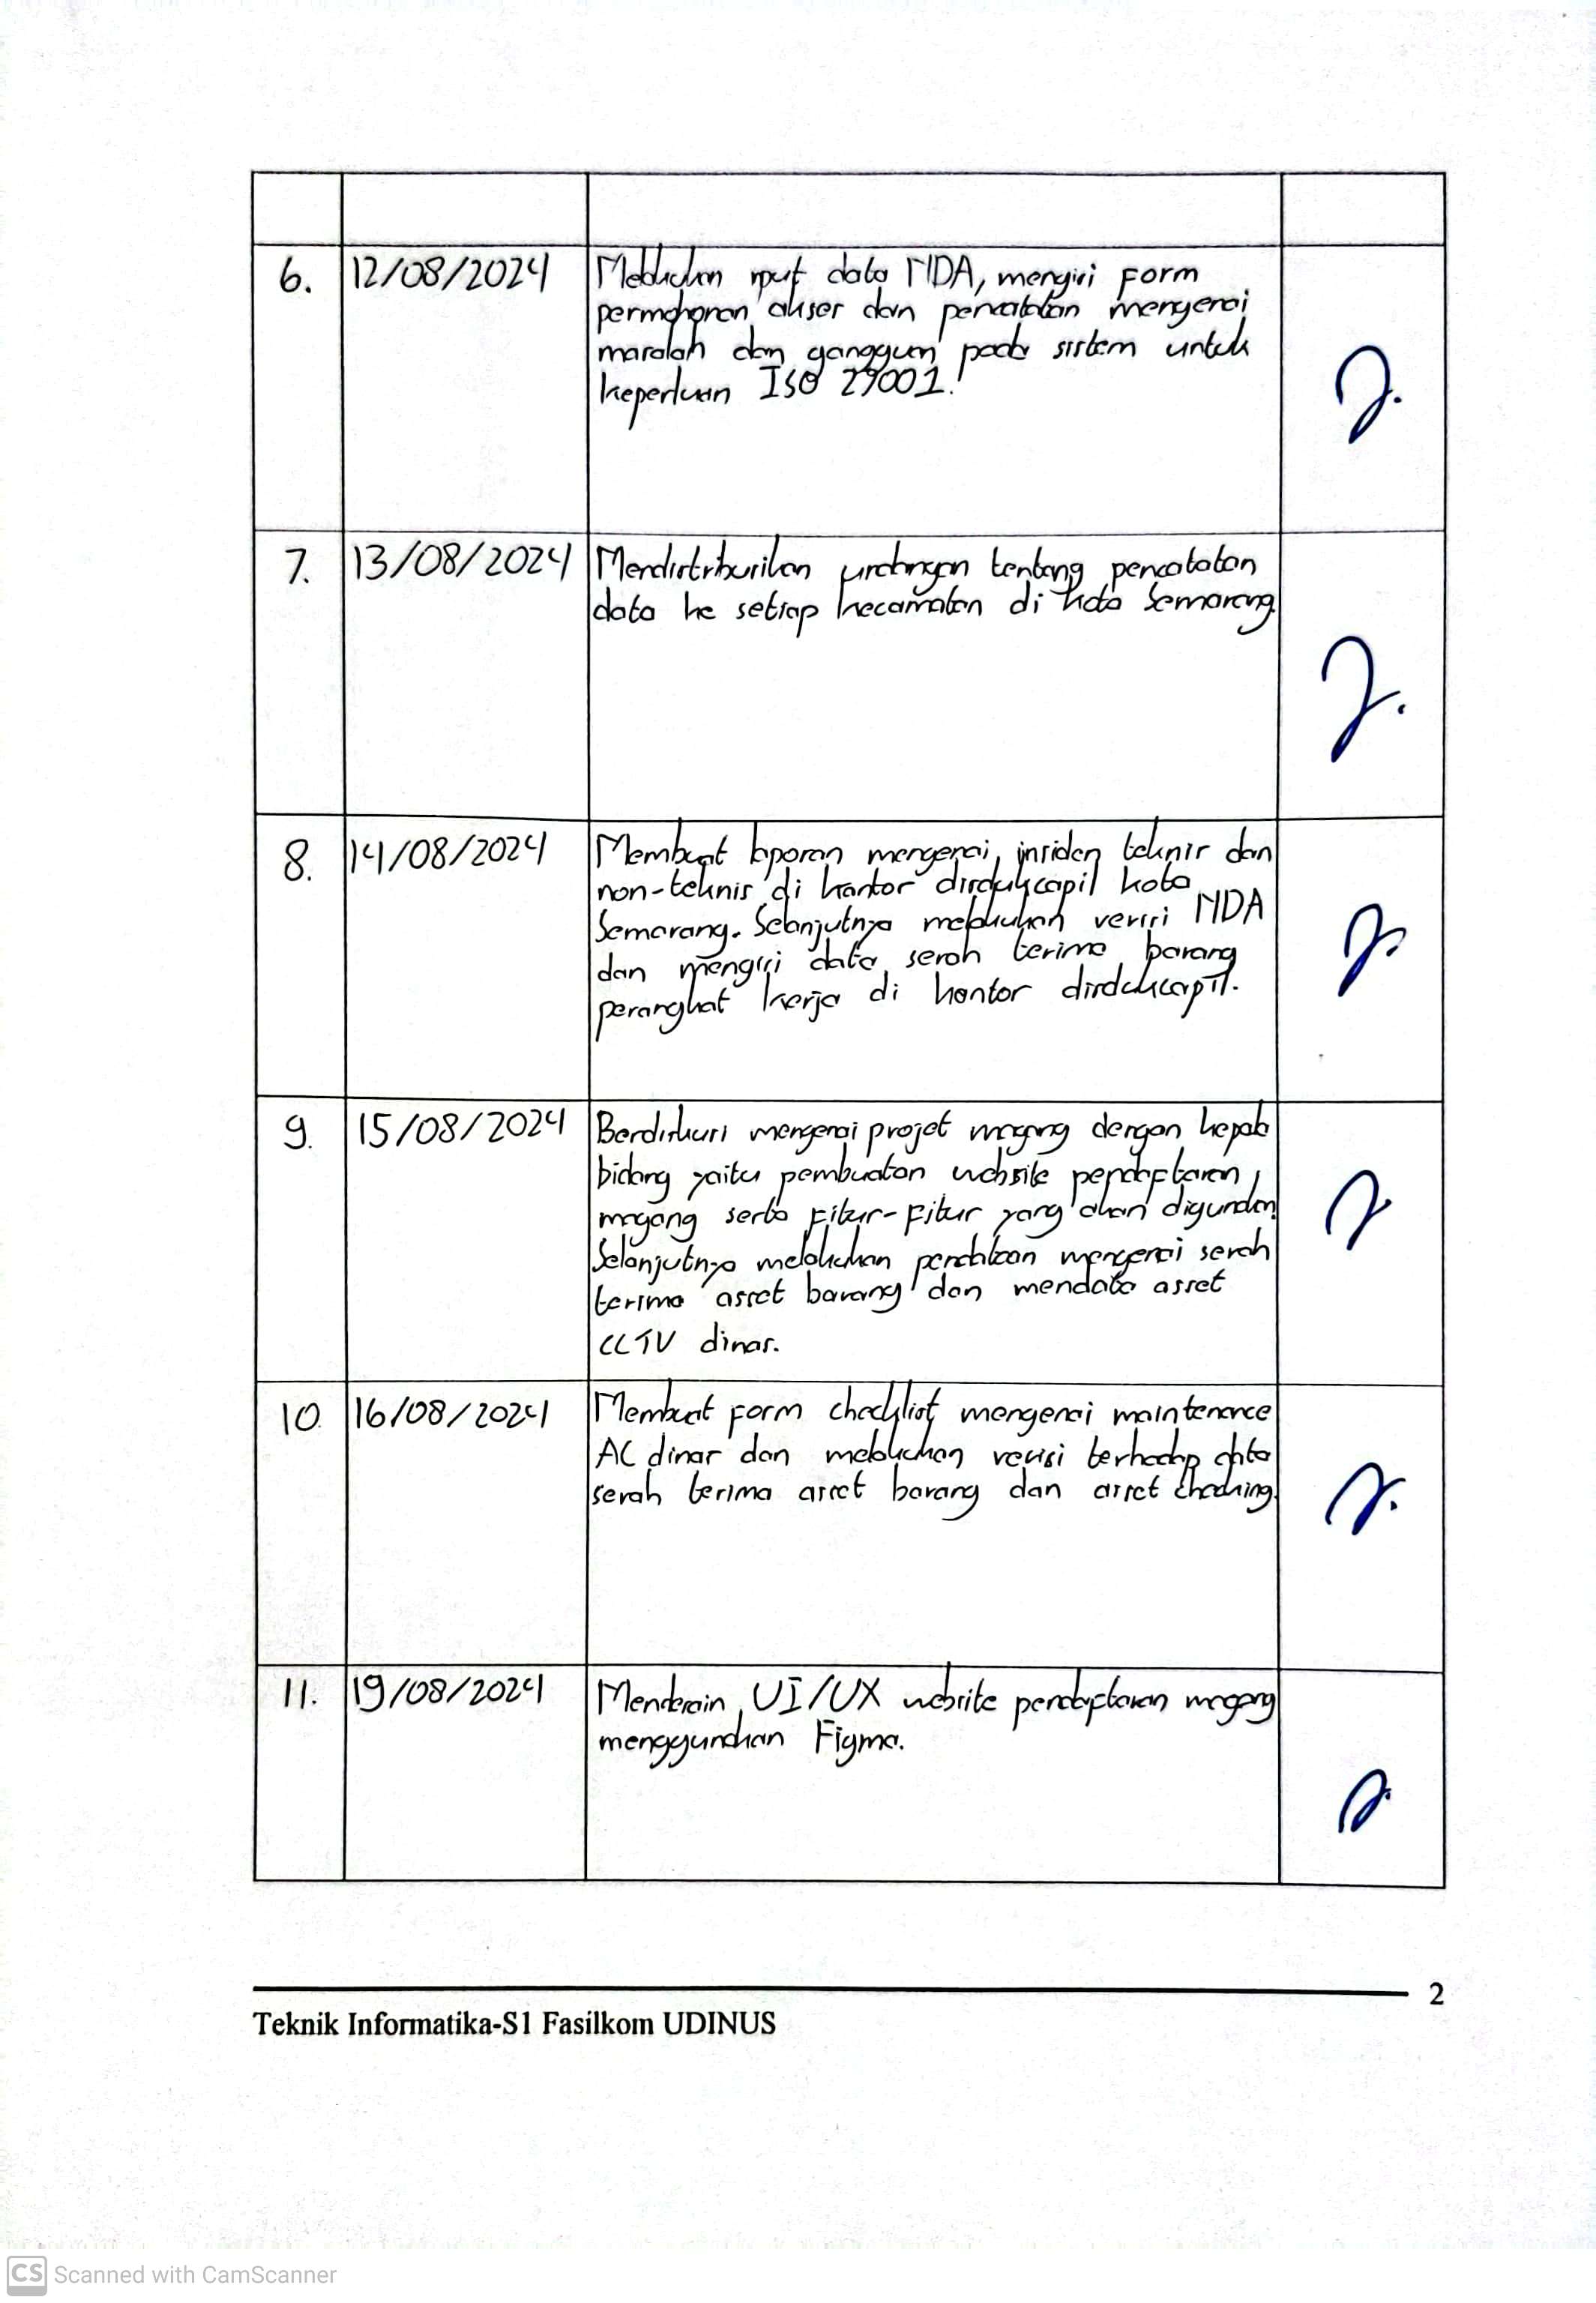 6. 12/08/2024 Melakukan input data NDA, mengisi form
permohonan akses dan pencatatan mengenai
masalah dan gangguan pada sistem untuk
keperluan ISO 27001.
7. 13/08/2024 Mendistribusikan undangan tentang pencatatan
data ke setiap kecamatan di kota Semarang.
8. 14/08/2024 Membuat laporan mengenai insiden teknis dan
non-teknis di kantor disdukcapil kota
Semarang. Selanjutnya melakukan revisi NDA
dan mengisi data serah terima barang
perangkat kerja di kantor disdukcapil.
9. 15/08/2024 Berdiskusi mengenai projet magang dengan kepala
bidang yaitu pembuatan website pendaftaran
magang serta fitur-fitur yang akan digunakan.
Selanjutnya melakukan pendataan mengenai serah
terima asset barang dan mendata asset
CCTV dinas.
10. 16/08/2024 Membuat form checklist mengenai maintenance
AC dinas dan melakukan revisi terhadap data
serah terima asset barang dan asset checking.
11. 19/08/2024 Mendesain UI/UX website pendaftaran magang
menggunakan Figma.
2
Teknik Informatika-S1 Fasilkom UDINUS
CS Scanned with CamScanner